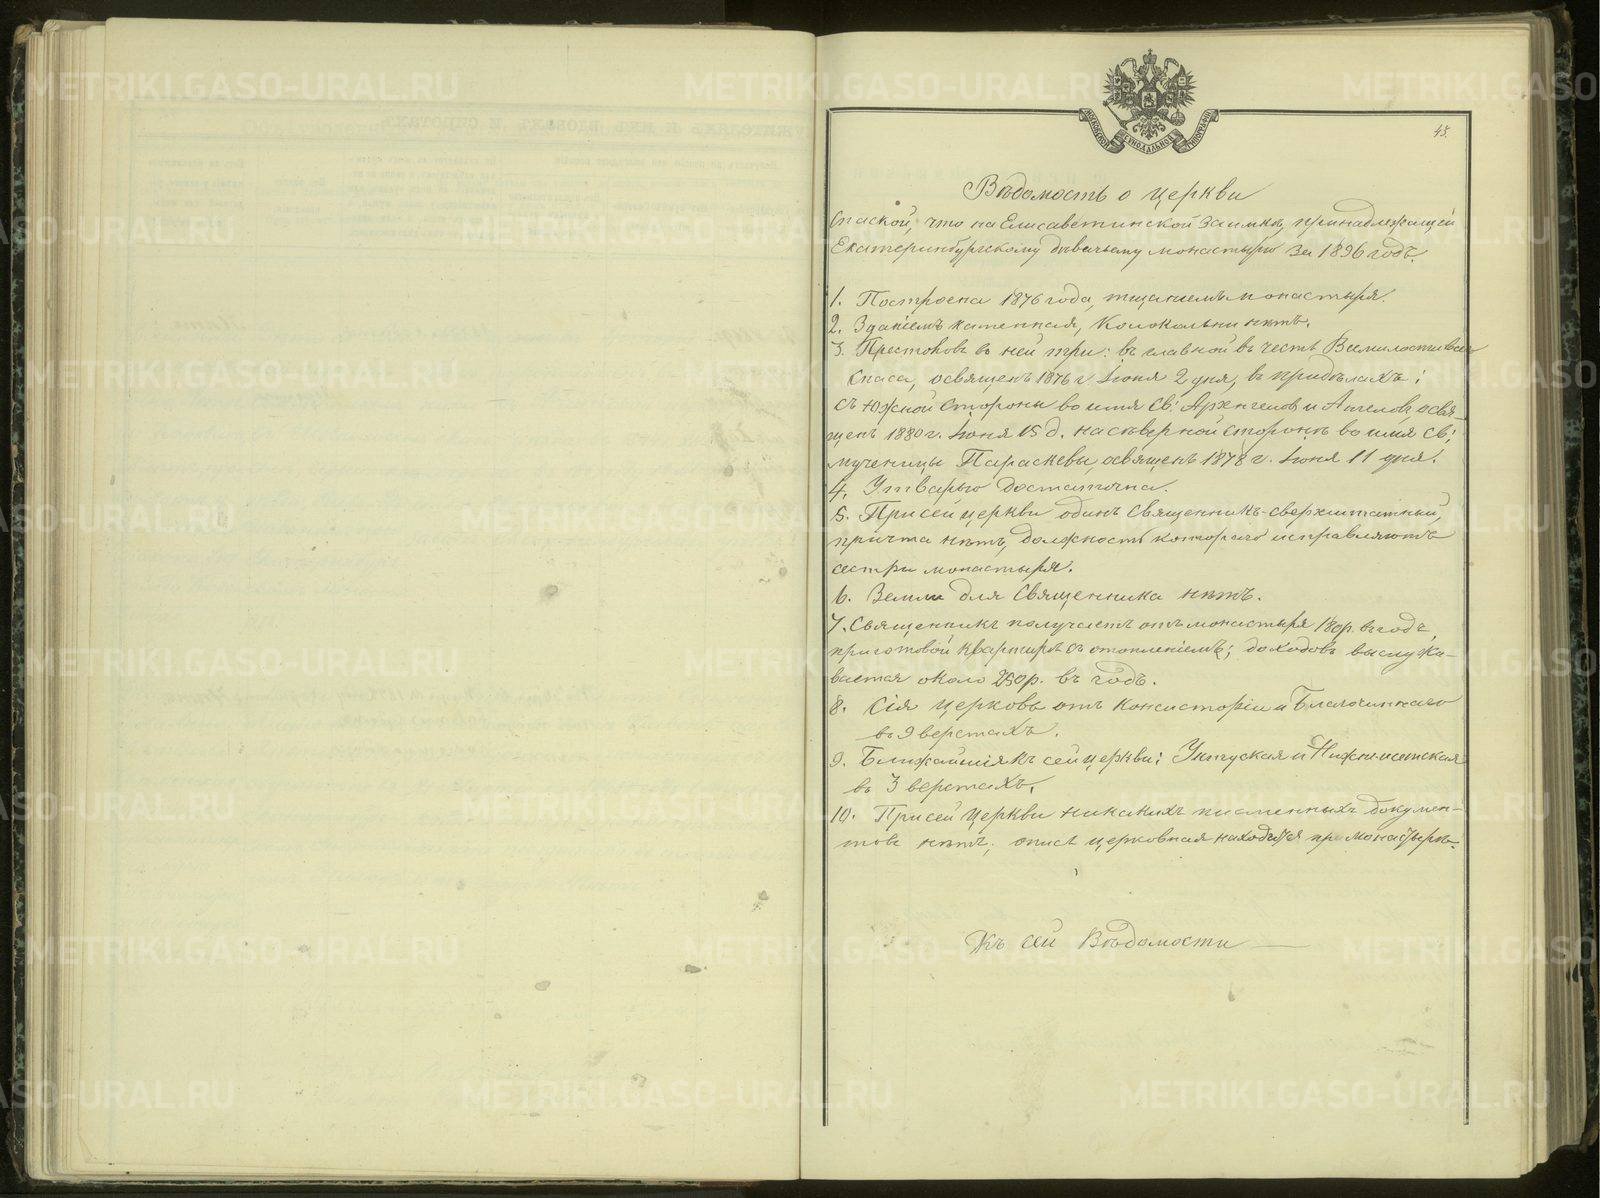 МОСКОВСКОЙ СУНОДАЛЬНОЙ ТИПОГРАФІИ
45.
Вѣдомость о церкви
Спаской, что на Елисаветинской Заимкѣ, принадлежащей
Екатеринбургскому дѣвичьему монастырю за 1896 годъ.
1. Построена 1876 года, тщаніемъ монастыря.
2. Зданіемъ каменная, колокольни нѣтъ.
3. Престоловъ въ ней три: въ главной въ честь Всемилостиваго
Спаса, освященъ 1876 г. Іюня 2 дня, въ придѣлахъ:
съ Южной стороны во имя Св: Архенгелов и Ангеловъ, освя-
щенъ 1880 г. Іюня 15 д. на сѣверной сторонѣ во имя Св:
мученицы Параскевы, освященъ 1878 г. Іюня 11 дня.
4. Утварью достаточна.
5. При сей церкви одинъ Священникъ-сверхштатный,
причта нѣтъ, должность котораго исправляютъ
сестры монастыря.
6. Земли для Священника нѣтъ.
7. Священникъ получаетъ отъ монастыря 180 р. въ годъ,
при готовой квартирѣ съ отопленіемъ; доходовъ выслужи-
вается около 250 р. въ годъ.
8. Сія церковь отъ Консисторіи и Благочиннаго
въ 9 верстахъ.
9. Ближайшія къ сей церкви: Уктуская и Нижнеисетская
въ 3 верстахъ.
10. При сей Церкви никакихъ писменныхъ докумен-
товъ нѣтъ, опись церковная находится при монастырѣ.
Къ сей Вѣдомости
METRIKI.GASO-URAL.RU